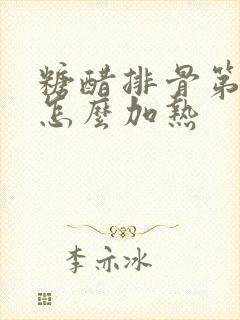 糖醋排骨第
怎麼加熱
李亦冰